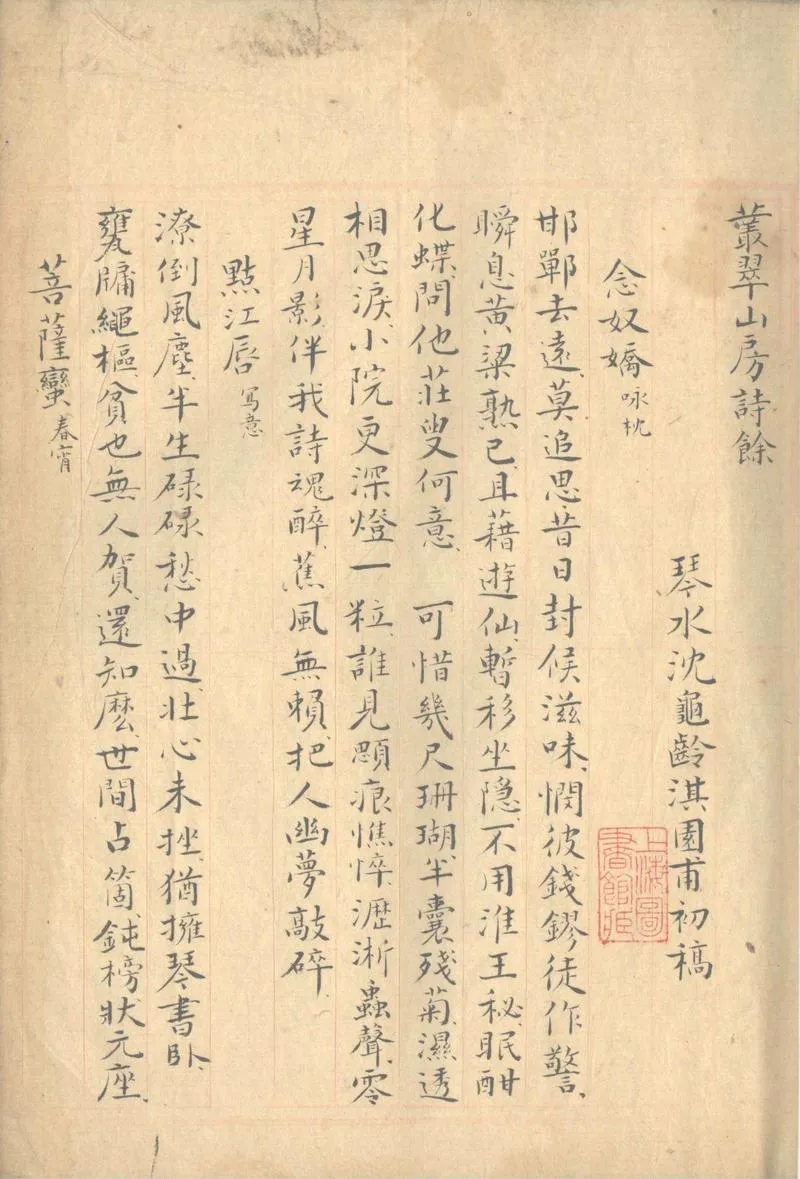 叢翠山房詩餘
琴水沈龜齡淇園甫初稿
上海圖書館藏
念奴嬌 咏枕
邯鄲去遠、莫追思昔日封侯滋味、憫彼錢鏐徒作警、
瞬息黃粱熟已、且藉遊仙、暫移坐隐、不用淮王秘、眠酣
化蝶、問他莊叟何意、 可惜幾尺珊瑚、半囊殘菊、濕透
相思淚、小院更深燈一粒、誰見顋痕憔悴、瀝淅蟲聲、零
星月影、伴我詩魂醉、蕉風無賴、把人幽夢敲碎、
點江唇 寫意
潦倒風塵、半生碌碌愁中過、壯心未挫、猶擁琴書臥、
甕牖繩樞、貧也無人賀、還知麽、世間占箇、鈍榜狀元座、
菩薩蠻 春宵